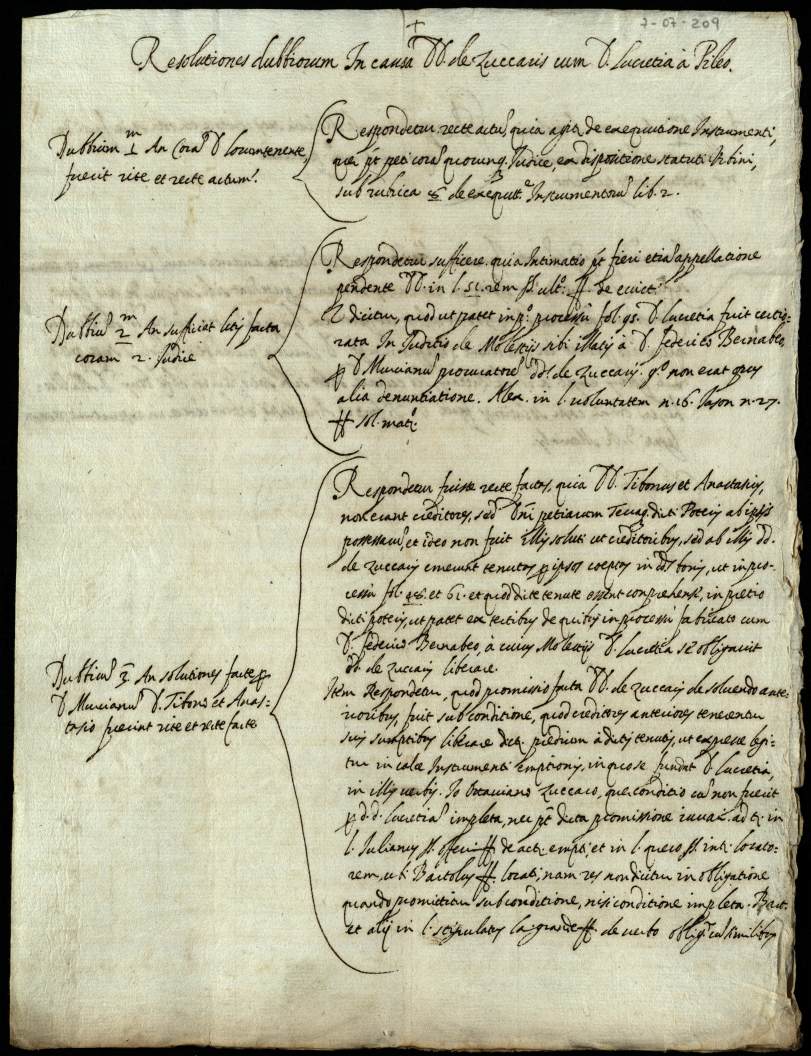 7-07-209
+
Resolutiones dubbiorum In causa DD. de Zuccaris cum D. Lucretia à Pileo.
Dubbium 1m An Cora D. locumtenente
fuerit rite et recte actum.
Respondetur recte actu, quia agit de exequutione Instrumenti,
que pt peti cora quocunq Judice, ex dispositione statuti Urbini,
sub rubrica 8 de exequut.e Instrumentoru lib. 2.
Dubbiu 2m An sufficiat litis facta
coram 2. Judice
Respondetur sufficere quia Intimatio pt fieri etia appellatione
pendente DD. in l. si rem § ult. ff. de evict.
2 dicitur, quod ut patet in pº processu fol. 95. D. lucretia fuit certio-
rata In Juditio de Molestijs sibi illatis à D. federico Bernabeo
p D. Murcianu procuratore dd. de Zuccarijs. qº non erat opus
alia denuntiatione. Alex. in l. voluntatem n. 16. Jason n. 27.
ff sol. matº.
Dubbiu 3 An solutiones facte p
D. Murcianu D. Tiborio et Anas-
tasio fuerint rite et recte facte
Respondetur fuisse recte factas, quia DD. Tiborius et Anastasius,
non erant creditores, sed Dni petiarum Terraq dicti Poteris ab ipsis
possessaru, et ideo non fuit illis soluti ut creditoribus, sed ab illis dd.
de Zuccarijs emerunt tenutas p ipsos coeptas in dis bonis, ut in pro-
cessu fol. 48. et 61. et quod dite tenute essent comprehense, in pretio
dicti poteris, ut patet ex testibus de quibus in processu fabricato cum
D. federico Bernabeo, à cuius Molestijs D. lucretia se obligavit
dd. de Zuccarijs liberare.
Item Respondetur, quod promissio facta DD. de Zuccarijs de solvendo ante-
rioribus, fuit sub conditione, quod creditores anteriores tenerentur
suis sumptibus liberare dict. predium à dictis tenutis, ut expresse legi-
tur in calce Instrumenti emptionis, in quo se fundat D. lucretia,
in illis verbis. Io Ottaviano Zuccaro, que conditio cu non fuerit
p d. d. lucretia impleta, nec pt dicta promissione iuvari. ad tx. in
l. Julianus § offerri ff de act. empt. et in l. quero § int. locato-
rem, ubi Bartolus ff. locati, nam res non dicitur in obligatione
quando promittitur sub conditione, nisi conditione impleta. Bart.
et alij in l. stipulatus la grande ff de verbo oblig. cu similibus